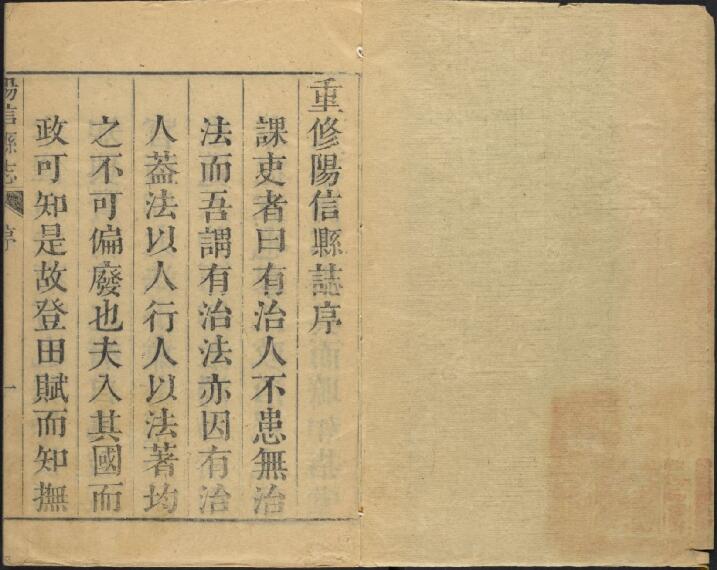 重修陽信縣誌序
課吏者曰有治人不患無治
法而吾謂有治法亦因有治
人葢法以人行人以法著均
之不可偏廢也夫入其國而
政可知是故登田賦而知撫
陽信縣志 序 一